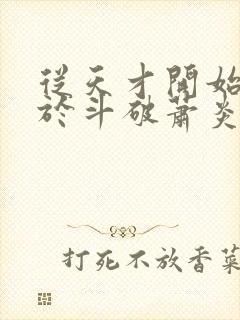 從天才開始
於斗破蕭炎
打死不放香菜